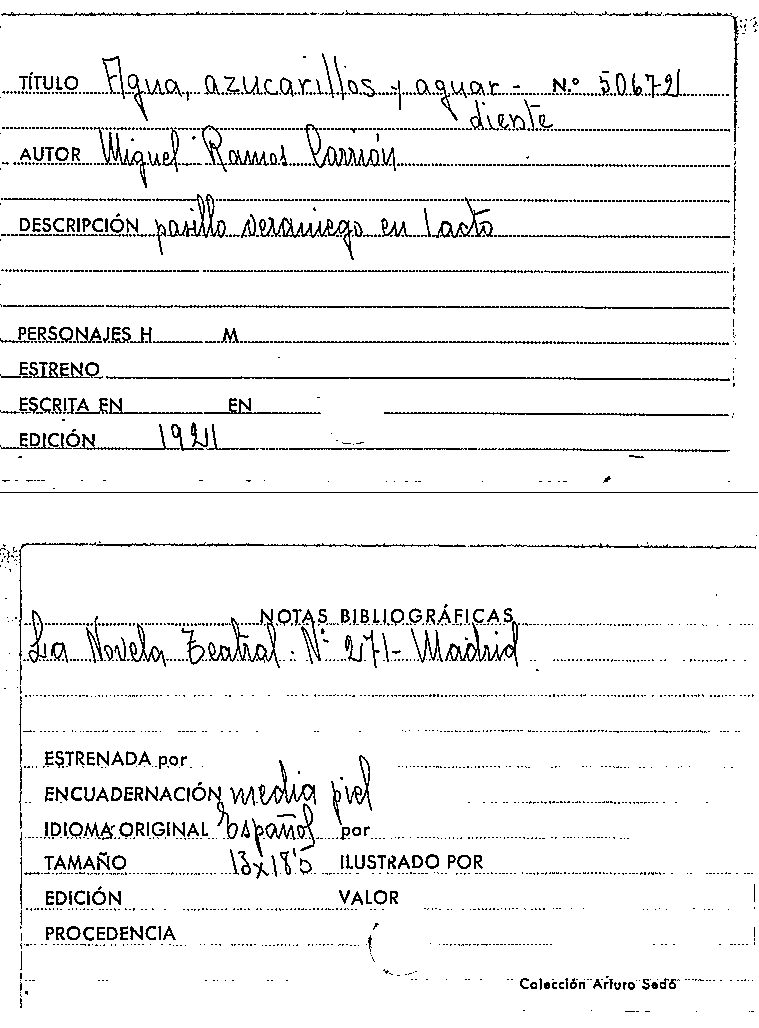 TÍTULO Agua, azucarillos y aguar- N.º 50672
diente
AUTOR Miguel Ramos Carrión
DESCRIPCIÓN pasillo veraniego en 1 acto
PERSONAJES H M
ESTRENO
ESCRITA EN EN
EDICIÓN 1921
NOTAS BIBLIOGRÁFICAS
La Novela Teatral. Nº 271- Madrid
ESTRENADA por
ENCUADERNACIÓN media piel
IDIOMA ORIGINAL Español por
TAMAÑO 13x18'5 ILUSTRADO POR
EDICIÓN VALOR
PROCEDENCIA
Colección Arturo Sedó